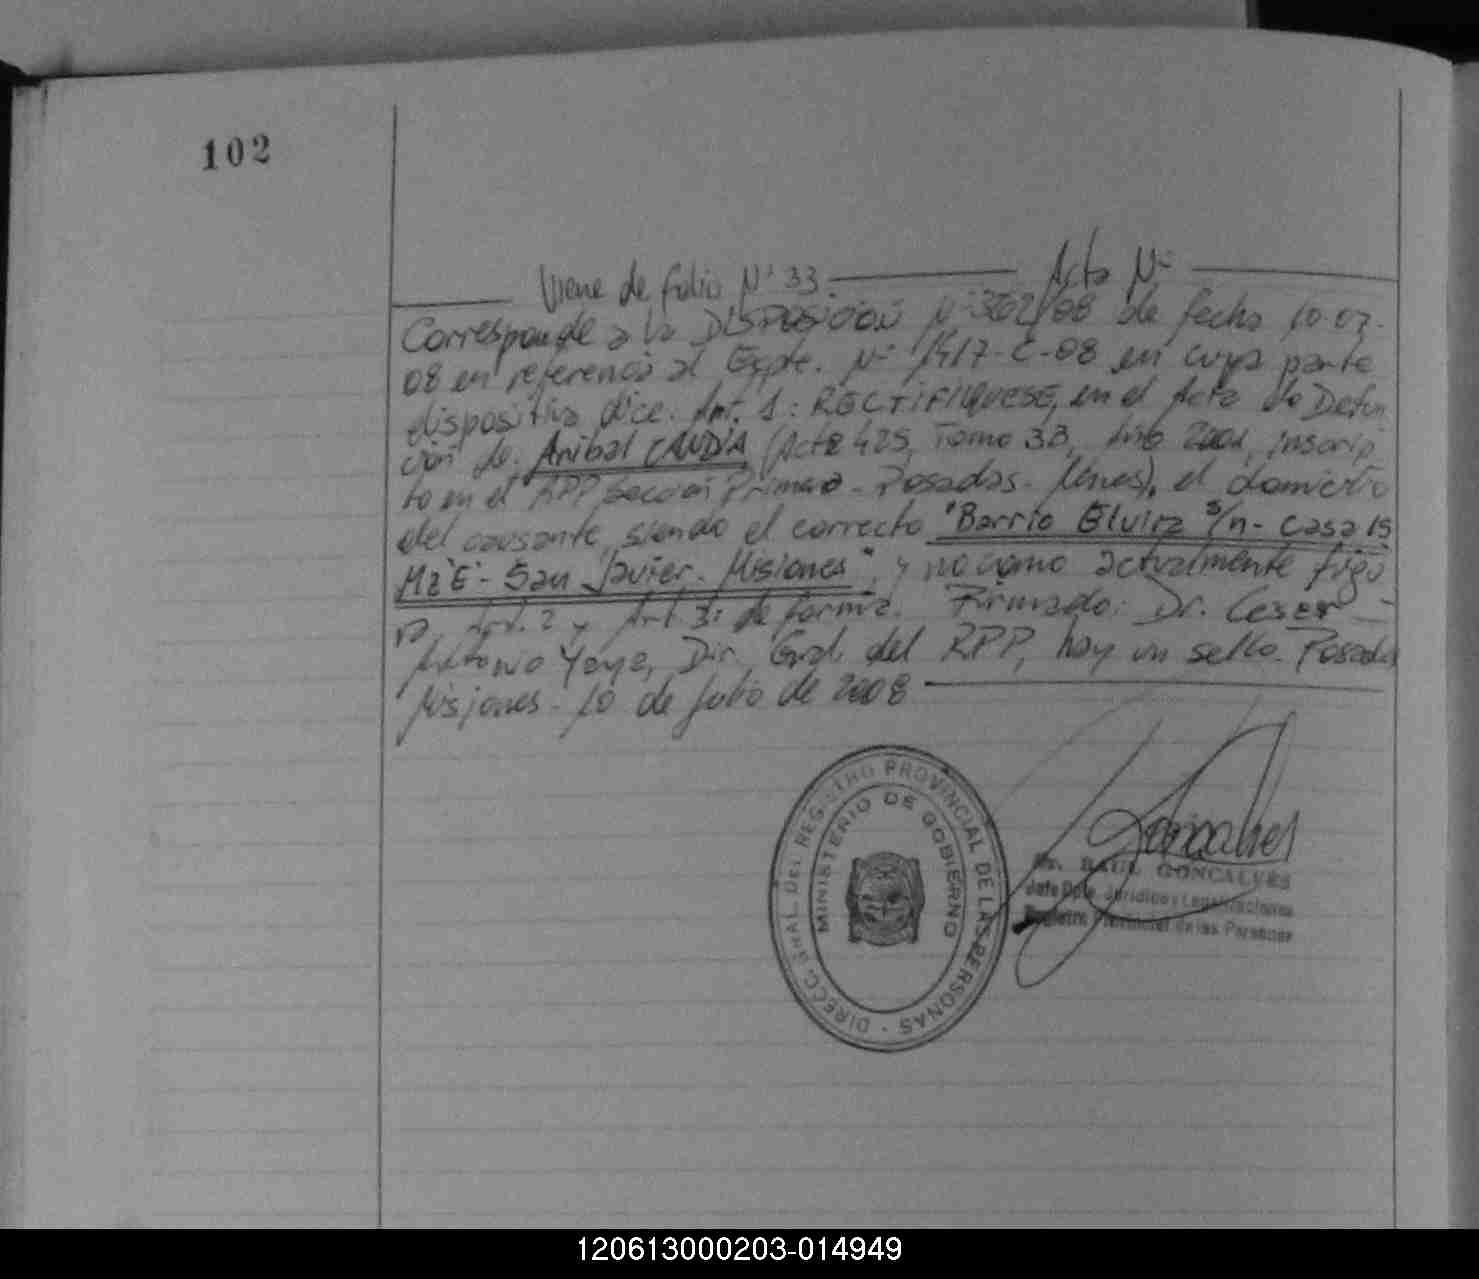 102
Viene de folio Nº 33. Acta Nº
Corresponde a la DISPOSICION Nº 302/08 de fecha 10-07-
08 en referencia al Expte. Nº 1417-C-08 en cuya parte
dispositiva dice. Art. 1: RECTIFIQUESE, en el Acta de Defun
ción de. Anibal CANDIA (Acta 425, Tomo 3B, Año 2001, inscrip
to en el RPP Sección Primera - Posadas - Mnes), el domicilio
del causante, siendo el correcto "Barrio Elvira s/n - casa 15
Mz"E"- San Javier - Misiones", y no como actualmente figu
ra. Art. 2 y Art. 3: de forma. Firmado: Dr. Cesar
Antonio Yaya, Dir. Gral. del RPP, hay un sello. Posadas
Misiones - 10 de Julio de 2008
DIRECC. GRAL. DEL REGISTRO PROVINCIAL DE LAS PERSONAS
MINISTERIO DE GOBIERNO
Goncalves
RAUL GONCALVES
Jefe Dpto. Jurídico y Legalizaciones
Registro Provincial de las Personas
120613000203-014949